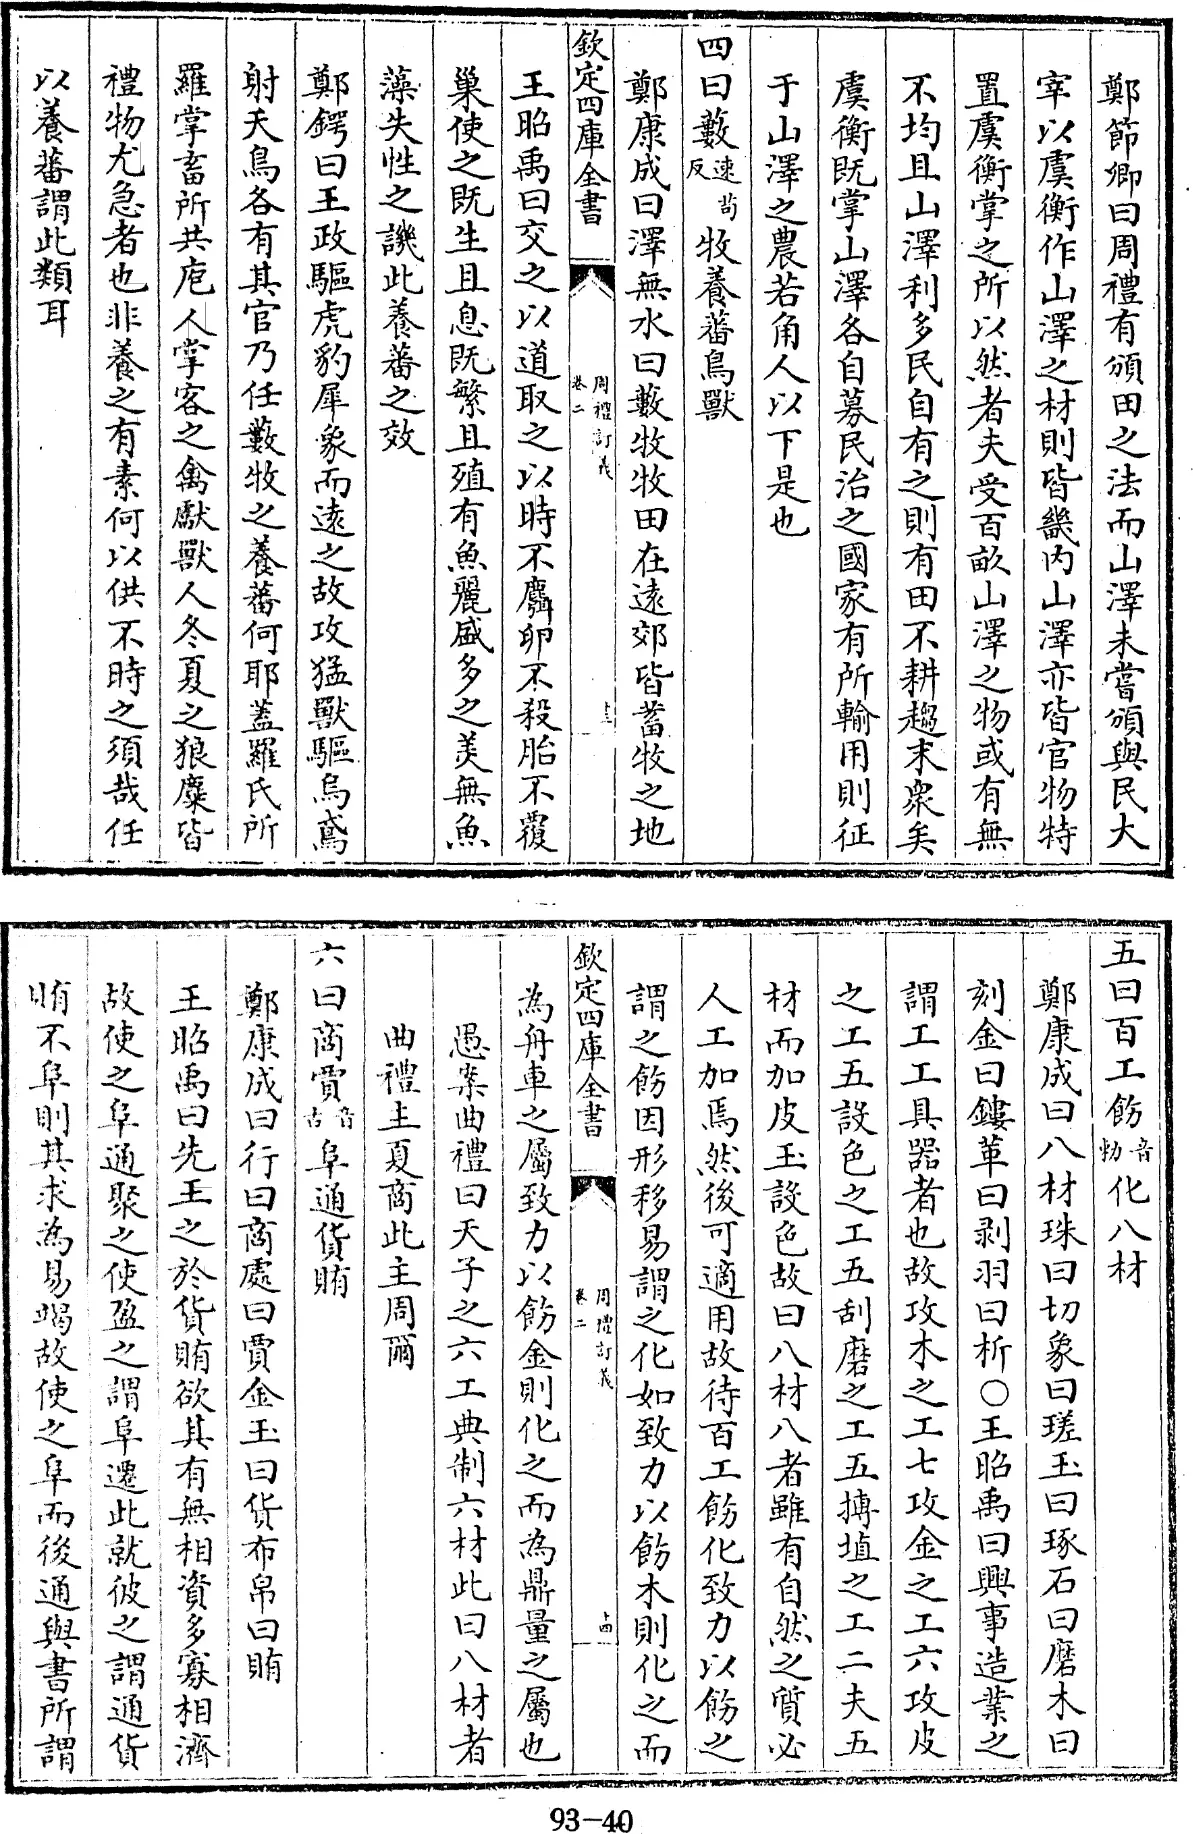 鄭節卿曰周禮有頒田之法而山澤未嘗頒與民大
宰以虞衡作山澤之材則皆畿内山澤亦皆官物特
置虞衡掌之所以然者夫受百畝山澤之物或有無
不均且山澤利多民自有之則有田不耕趨末衆矣
虞衡既掌山澤各自募民治之國家有所輸用則征
于山澤之農若角人以下是也
四曰藪速茍反牧養蕃鳥獸
鄭康成曰澤無水曰藪牧牧田在逺郊皆蓄牧之地
欽定四庫全書
周禮訂義
卷二
十三
王昭禹曰交之以道取之以時不麛卵不殺胎不覆
巢使之既生且息既繁且殖有魚麗盛多之美無魚
藻失性之譏此養蕃之效
鄭鍔曰王政驅虎豹犀象而逺之故攻猛獸驅烏鳶
射天鳥各有其官乃任藪牧之養蕃何耶蓋羅氏所
羅掌畜所共庖人掌客之禽獻獸人冬夏之狼麋皆
禮物尤急者也非養之有素何以供不時之須哉任
以養蕃謂此類耳
五曰百工飭音勅化八材
鄭康成曰八材珠曰切象曰瑳玉曰琢石曰磨木曰
刻金曰鏤革曰剥羽曰析○王昭禹曰興事造業之
謂工工具器者也故攻木之工七攻金之工六攻皮
之工五設色之工五刮磨之工五搏埴之工二夫五
材而加皮玉設色故曰八材八者雖有自然之質必
人工加焉然後可適用故待百工飭化致力以飭之
謂之飭因形移易謂之化如致力以飭木則化之而
欽定四庫全書
周禮訂義
卷二
十四
為舟車之屬致力以飭金則化之而為鼎量之屬也
愚案曲禮曰天子之六工典制六材此曰八材者
曲禮主夏商此主周爾
六曰商賈音古阜通貨賄
鄭康成曰行曰商處曰賈金玉曰貨布帛曰賄
王昭禹曰先王之於貨賄欲其有無相資多寡相濟
故使之阜通聚之使盈之謂阜遷此就彼之謂通貨
賄不阜則其求為易竭故使之阜而後通與書所謂
93-40